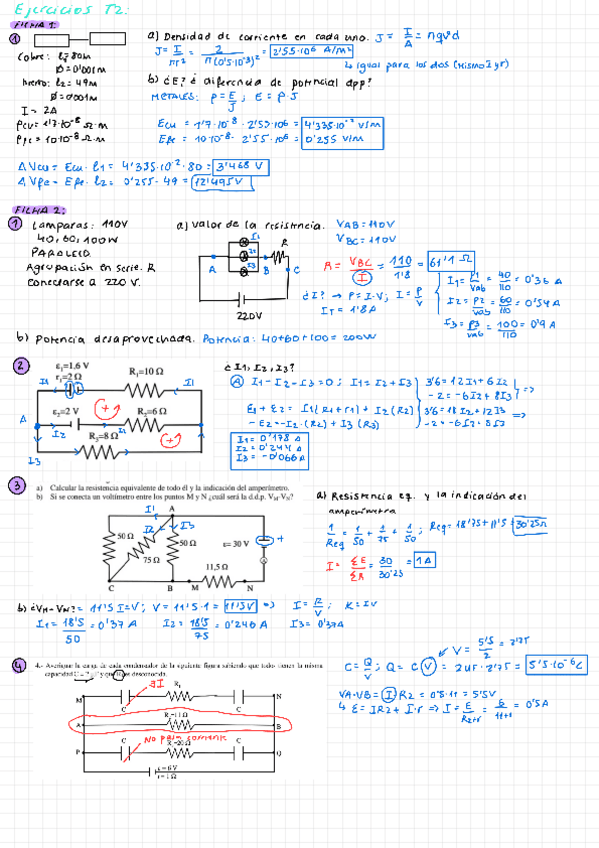 Ejercicios T2:
FICHA 1:
1
a) Densidad de corriente en cada uno. J = I/A = nqvd
Cobre: l1=80m
Ø=0'001m
Hierro: l2=49m
Ø=0'001m
I= 2A
ρcu=1'7·10⁻⁸ Ω·m
ρfe= 10·10⁻⁸ Ω·m
J= I/πr² = 2/π(0'5·10⁻³)² = 2'55·10⁶ A/m²
↳ igual para los dos (mismo I y r)
b) ¿E? ¿ diferencia de potencial dpp?
METALES: ρ = E/J ; E = ρ·J
Ecu = 1'7·10⁻⁸ · 2'55·10⁶ = 4'335·10⁻² V/m
Efe = 10·10⁻⁸ · 2'55·10⁶ = 0'255 V/m
ΔVcu = Ecu · l1 = 4'335·10⁻² · 80 = 3'468 V
ΔVfe = Efe · l2 = 0'255 · 49 = 12'495V
FICHA 2:
1
Lamparas: 110V
40, 60, 100W
PARALELO
Agrupación en serie. R
Conectarse a 220 V.
a) Valor de la resistencia.
VAB=110V
VBC=110V
I1
I2
I3
R
A
B
C
220V
R = VBC/I = 110/1'8 = 61'1 Ω
¿I? → P=I·V; I = P/V
IT= 1'8A
I1= P1/Vab = 40/110 = 0'36 A
I2= P2/Vab = 60/110 = 0'54A
I3= P3/Vab = 100/110 = 0'9 A
b) Potencia desaprovechada. Potencia: 40+60+100=200W
2
ε1=1,6 V
r1=2 Ω
R1=10 Ω
ε2=2 V
R2=6 Ω
R3=8 Ω
A
I1
I1
I2
I3
¿I1, I2, I3?
A I1-I2-I3=0; I1=I2+I3
E1+E2= I1(R1+r1) + I2(R2)
-E2=-I2·(R2) + I3(R3)
3'6=12I1+6I2
-2=-6I2+8I3 ⇒
3'6=18I2+12I3
-2=-6I2+8I3 ⇒
I1=0'178 A
I2=0'244 A
I3=-0'066A
3
a) Calcular la resistencia equivalente de todo él y la indicación del amperímetro.
b) Si se conecta un voltímetro entre los puntos M y N ¿cuál será la d.d.p. VM-VN?
I1
A
I2
I3
50 Ω
75 Ω
50 Ω
ε= 30 V
11,5 Ω
C
B
M
N
a) Resistencia eq. y la indicación del
amperímetro
1/Req = 1/50 + 1/75 + 1/50; Req=18'75+11'5=30'25Ω
I= ΣE/ΣR = 30/30'25 = 1A
b) ¿VM-VN? = 11'5 I=V; V = 11'5·1 = 11'5V ⇒ I= R/V ;
I1 = 18'5/50 = 0'37A
I2= 18'5/75 = 0'246 A
I3= 0'37A
4
4.- Averigue la carga de cada condensador de la siguiente figura sabiendo que todo tienen la misma
capacidad y que R es desconocida.
M
C
R1
C
N
A
R2=11 Ω
B
P
C
R3=20 Ω
C
Q
No pasa corriente
ε= 6 V
r = 1 Ω
V= 5'5/2 = 2'75
C= Q/V; Q= C·V = 2μF·2'75 = 5'5·10⁻⁶C
VA-VB= I R2 = 0'5·11= 5'5V
↳ E= IR2 + I·r ⇒ I= E/R2+r = 6/11+1 = 0'5A